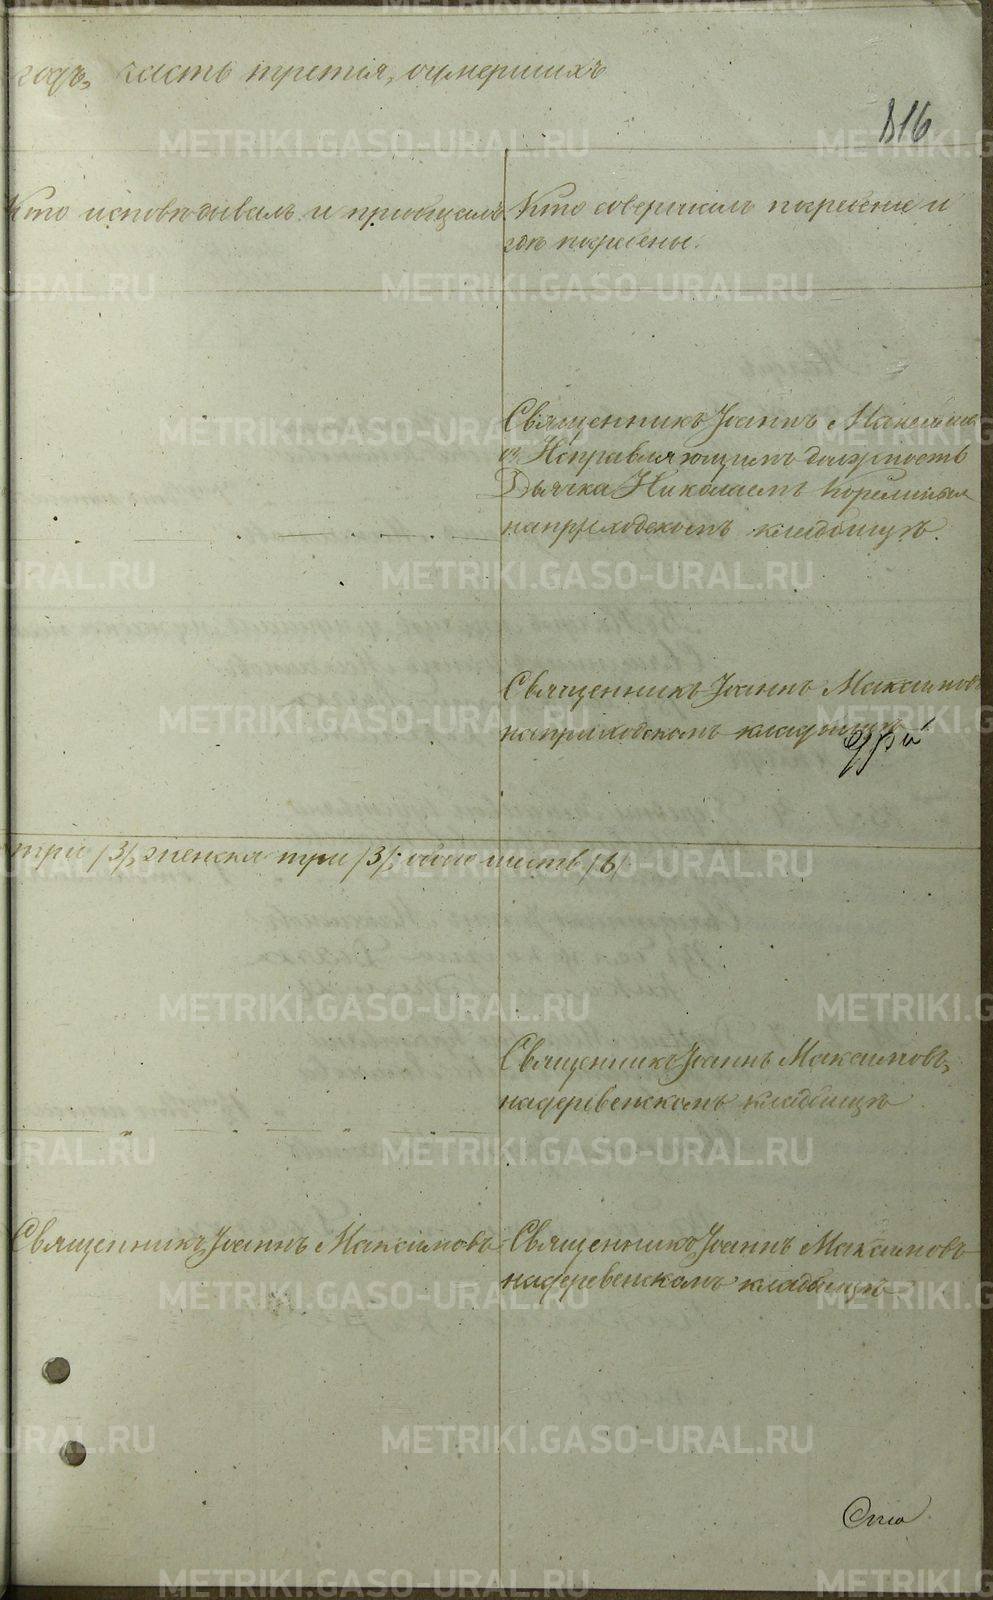 годъ, часть третія, оумершихъ
816
Кто исповѣдывалъ и пріобщалъ.
Кто совершалъ погребеніе и
гдѣ погребены.
Священникъ Іоаннъ Максимовъ
съ Исправляющимъ должность
Дьячка Николаемъ
наприходскомъ кладбищѣ.
Священникъ Іоаннъ Максимовъ
наприходскомъ кладбищѣ
три /3/, женска три /3/; обоего шесть /6/
Священникъ Іоаннъ Максимовъ,
надеревенскомъ кладбищѣ
Священникъ Іоаннъ Максимовъ
Священникъ Іоаннъ Максимовъ
надеревенскомъ кладбищѣ
METRIKI.GASO-URAL.RU